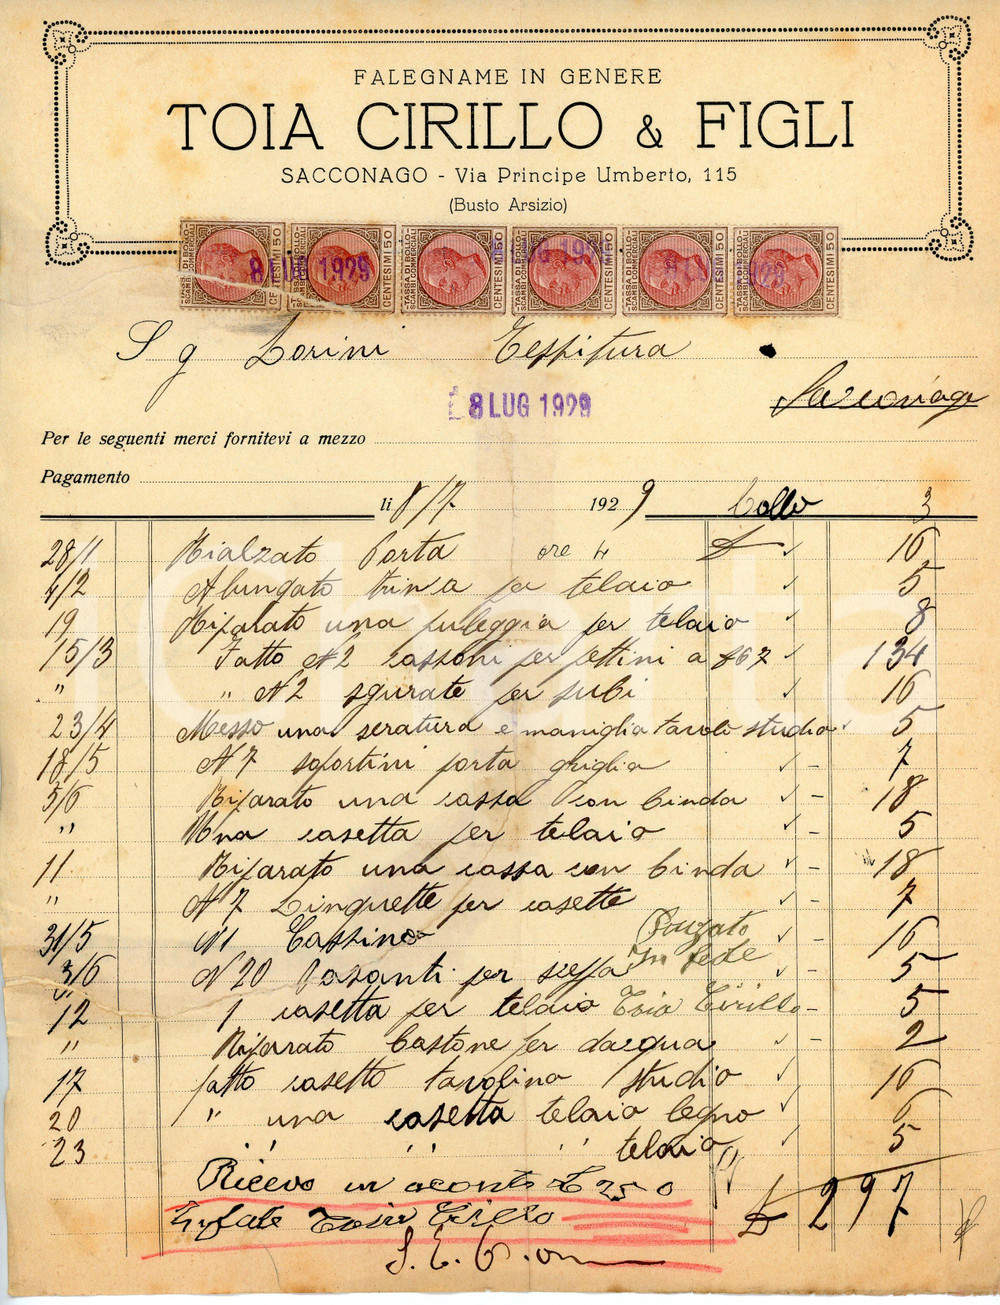 FALEGNAME IN GENERE
TOIA CIRILLO & FIGLI
SACCONAGO - Via Principe Umberto, 115
(Busto Arsizio)
TASSA DI BOLLO SCAMBI COMMERCIALI CENTESIMI 50
8 LUG 1929
S g Lorini Tessitura
Sacconago
8 LUG 1929
Per le seguenti merci fornitevi a mezzo
Pagamento
li 8/7 1929
3
28/1 Rialzato Porta ore 4 £ 16
4/2 Alungato per telaio 5
19 Riparato una puleggia per telaio 8
15/3 Fatto N 2 cassoni per pettini a 67 134
" " N 2 sgurate per subi 16
23/4 Messo una seratura e maniglia tavolo studio 5
18/5 N 7 sportini porta griglia - 7
5/6 Riparato una cassa con binda - 18
" Una casetta per telaio - 5
11 Riparato una cassa con binda - 18
" N 7 Linguette per casette - 7
31/5 N 1 Cassino - 16
3/6 N 20 Pasanti per - 5
12 1 casetta per telaio Toia Cirillo - 5
" Riparato Bastone per dacqua - 2
17 fatto casetto tavolino studio 16
20 " una casetta telaio legno 6
23 " " " " telaio 5
Ricevo in aconto £ 250
£ 297
Toia Cirillo
S. E. O.